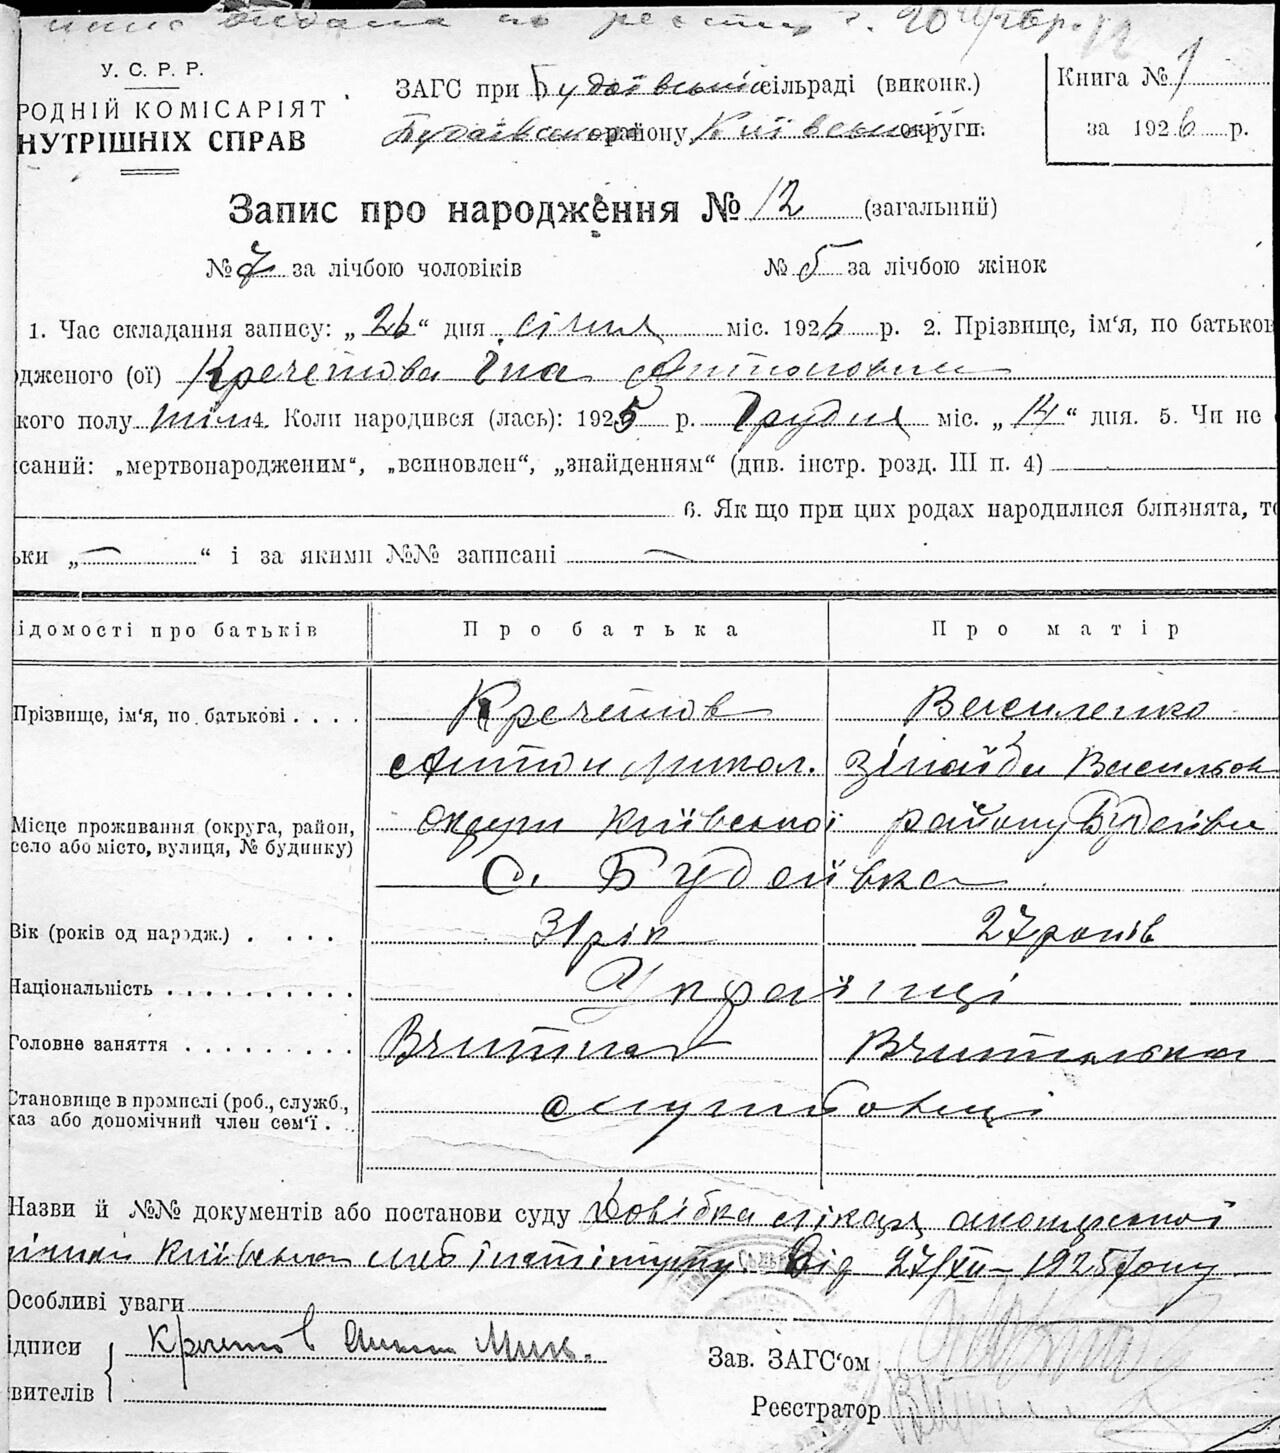 У. С. Р. Р.
РОДНІЙ КОМІСАРІЯТ
НУТРІШНІХ СПРАВ
ЗАГС при Будаївській сільраді (виконк.)
Будаївського району Київської округи.
Книга № 1
за 1926 р.
Запис про народження № 12 (загальний)
№ 7 за лічбою чоловіків № 5 за лічбою жінок
1. Час складання запису: „26“ дня січня міс. 1926 р. 2. Прізвище, ім‘я, по батьков
дженого (ої) Кречетова Іна Антоновна
кого полу жін. 4. Коли народився (лась): 1925 р. Грудня міс. „14“ дня. 5. Чи не
саний: „мертвонародженим“, „всиновлен“, „знайденням“ (див. інстр. розд. III п. 4)
6. Як що при цих родах народилися близнята, то
ьки „—“ і за якими №№ записані —
ідомості про батьків Про батька Про матір
Прізвище, ім‘я, по батькові . . . . Кречетов Василенко
Антон Микол. Зінаїда Васильов
Місце проживання (округа, район,
село або місто, вулиця, № будинку)
округи Київської району Будаївка
С. Будаївка
Вік (років од народж.) . . . . 31 рік 27 років
Національність . . . . . . . . . . Українці
Головне заняття . . . . . . . . . Вчитель Вчителька
Становище в промислі (роб., служб.,
каз або допомічний член сем‘ї .
службовці
Назви й №№ документів або постанови суду Довідка лікаря акошерської
Київська мед інстітуту. Від 27/XII – 1925 року
Особливі уваги
ідписи
вителів
Кречетов Антон Мик.
Зав. ЗАГС‘ом
Реєстратор